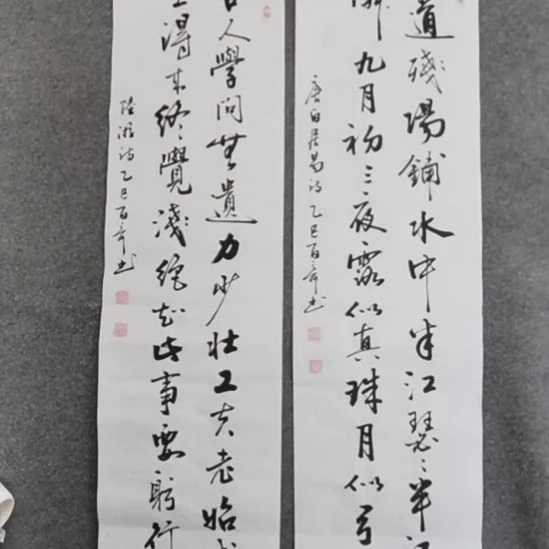 道殘陽鋪水中半江瑟瑟半江
憐九月初三夜露似真珠月似弓
唐白居易詩乙巳百奇书
古人學問無遺力少壯工夫老始成
上得來終覺淺絕知此事要躬行
陸游詩乙巳百奇书